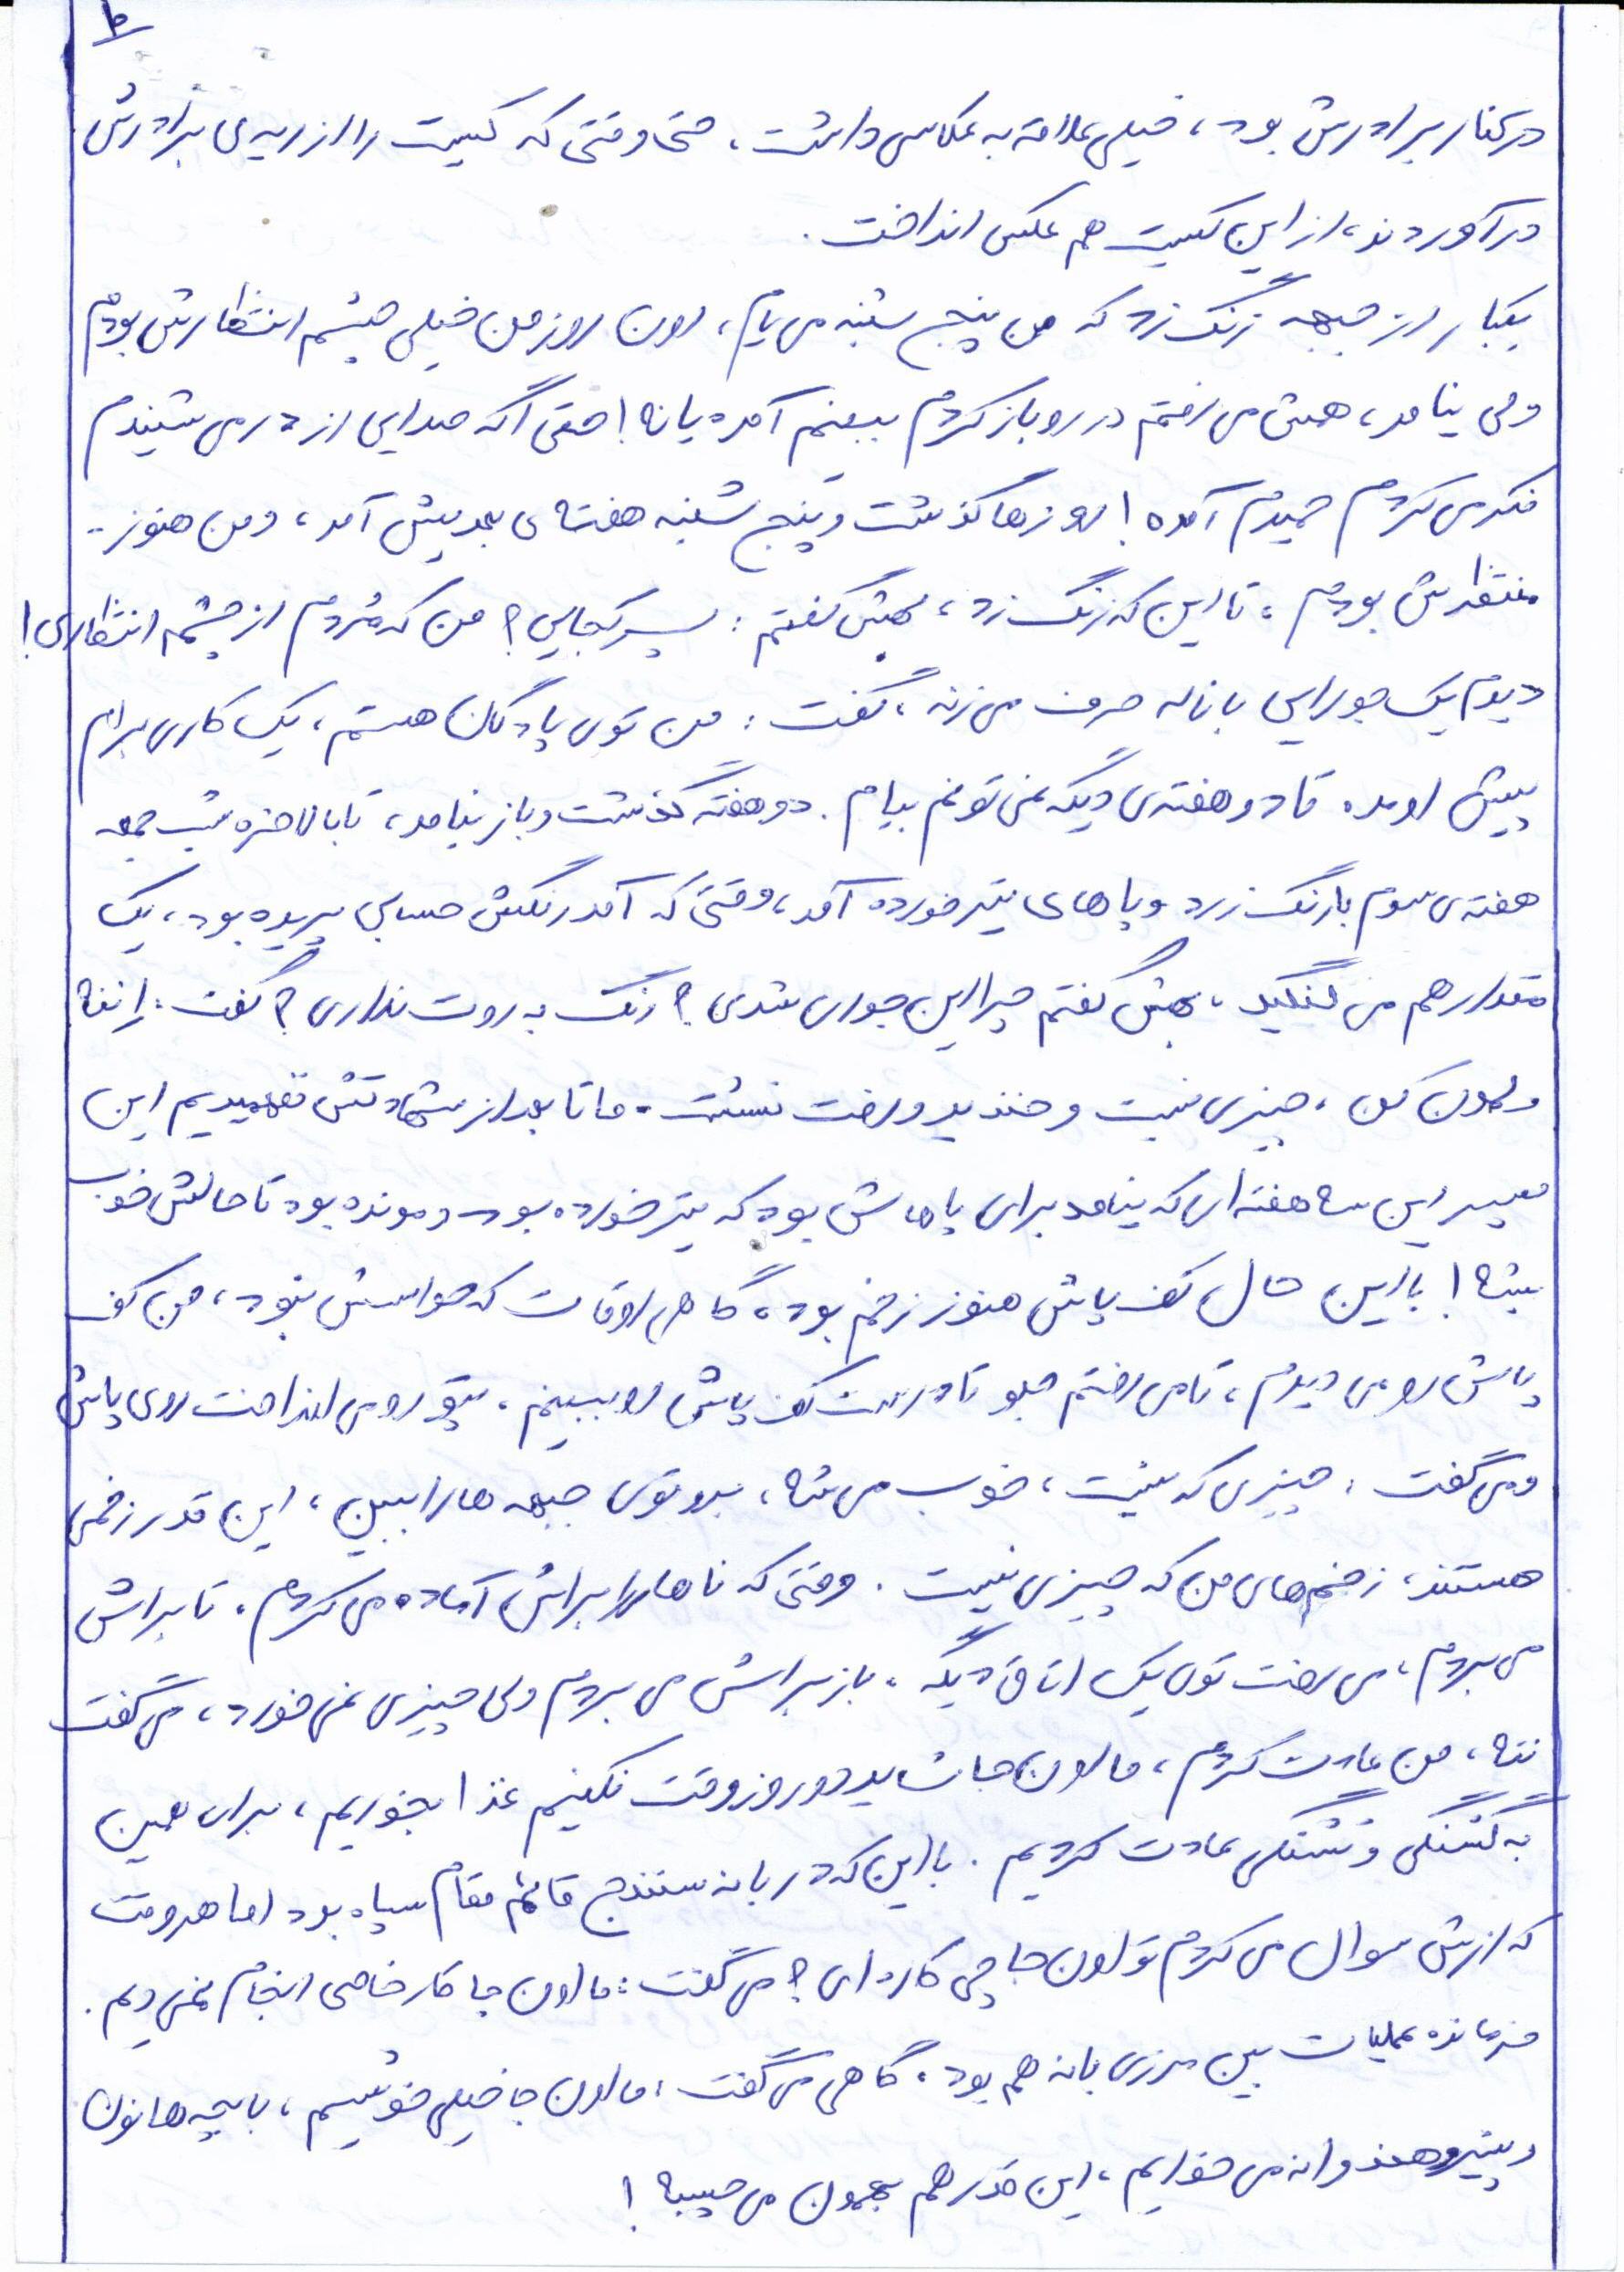 در کنار برادرش بود، خیلی علاقه به عکاسی داشت، حتی وقتی که کیست را از ریه‌ی برادرش
در آوردند، از این کیست هم عکس انداخت.
یکبار از جبهه زنگ زد که من پنج شنبه می یام، اون روز من خیلی چشم انتظارش بودم
ولی نیامد، همش می رفتم در رو باز کردم ببینم آمده یا نه! حتی اگه صدایی از در می شنیدم
فکر می کردم حمیدم آمده! روزها گذشت و پنج شنبه هفته‌ی بعدیش آمد، و من هنوز
منتظرش بودم، تا این که زنگ زد، بهش گفتم: پسر کجایی؟ من که مُردم از چشم انتظاری!
دیدم یک جورایی با ناله حرف می زنه، گفت: من توی پادگان هستم، یک کاری برام
پیش اومده تا دو هفته‌ی دیگه نمی تونم بیام. دو هفته گذشت و باز نیامد، تا بالاخره شب جمعه
هفته‌ی سوم با رنگ زرد و پاهای تیر خورده آمد، وقتی که آمد رنگش حسابی پریده بود، یک
مقدار هم می لنگید، بهش گفتم چرا این جوری شدی؟ رنگ به روت نداری؟ گفت: اِ ننه
ولمون کن، چیزی نیست و خندید و رفت نشست. ما تا بعد از شهادتش نفهمیدیم این
پسر این سه هفته ای که نیامد برای پاهاش بود که تیر خورده بود و مونده بود تا حالش خوب
بشه! با این حال کف پاش هنوز زخم بود، گاهی اوقات که حواسش نبود، من کف
پاش رو می دیدم، تا می رفتم جلو تا درست کف پاش رو ببینم، پتو رو می انداخت روی پاش
و می گفت: چیزی که نیست، خوب می شه، برو توی جبهه ها را ببین، این قدر زخمی
هستند، زخم‌های من که چیزی نیست. وقتی که ناهار را براش آماده می کردم، تا براش
می بردم، می رفت توی یک اتاق دیگه، باز براش می بردم ولی چیزی نمی خورد، می گفت
ننه، من عادت کردم، ما اون جا شاید دو روز وقت نکنیم غذا بخوریم، برای همین
به گشنگی و تشنگی عادت کردیم. با این که در بانه سنندج قائم مقام سپاه بود اما هر وقت
که ازش سوال می کردم تو اون جا چی کاره ای؟ می گفت: ما اون جا کار خاصی انجام نمی دیم.
فرمانده عملیات بین مرزی بانه هم بود، گاهی می گفت: ما اون جا خیلی خوشیم، با بچه ها نون
و پنیر و هندوانه می خوریم، این قدر هم بهمون می چسبه!